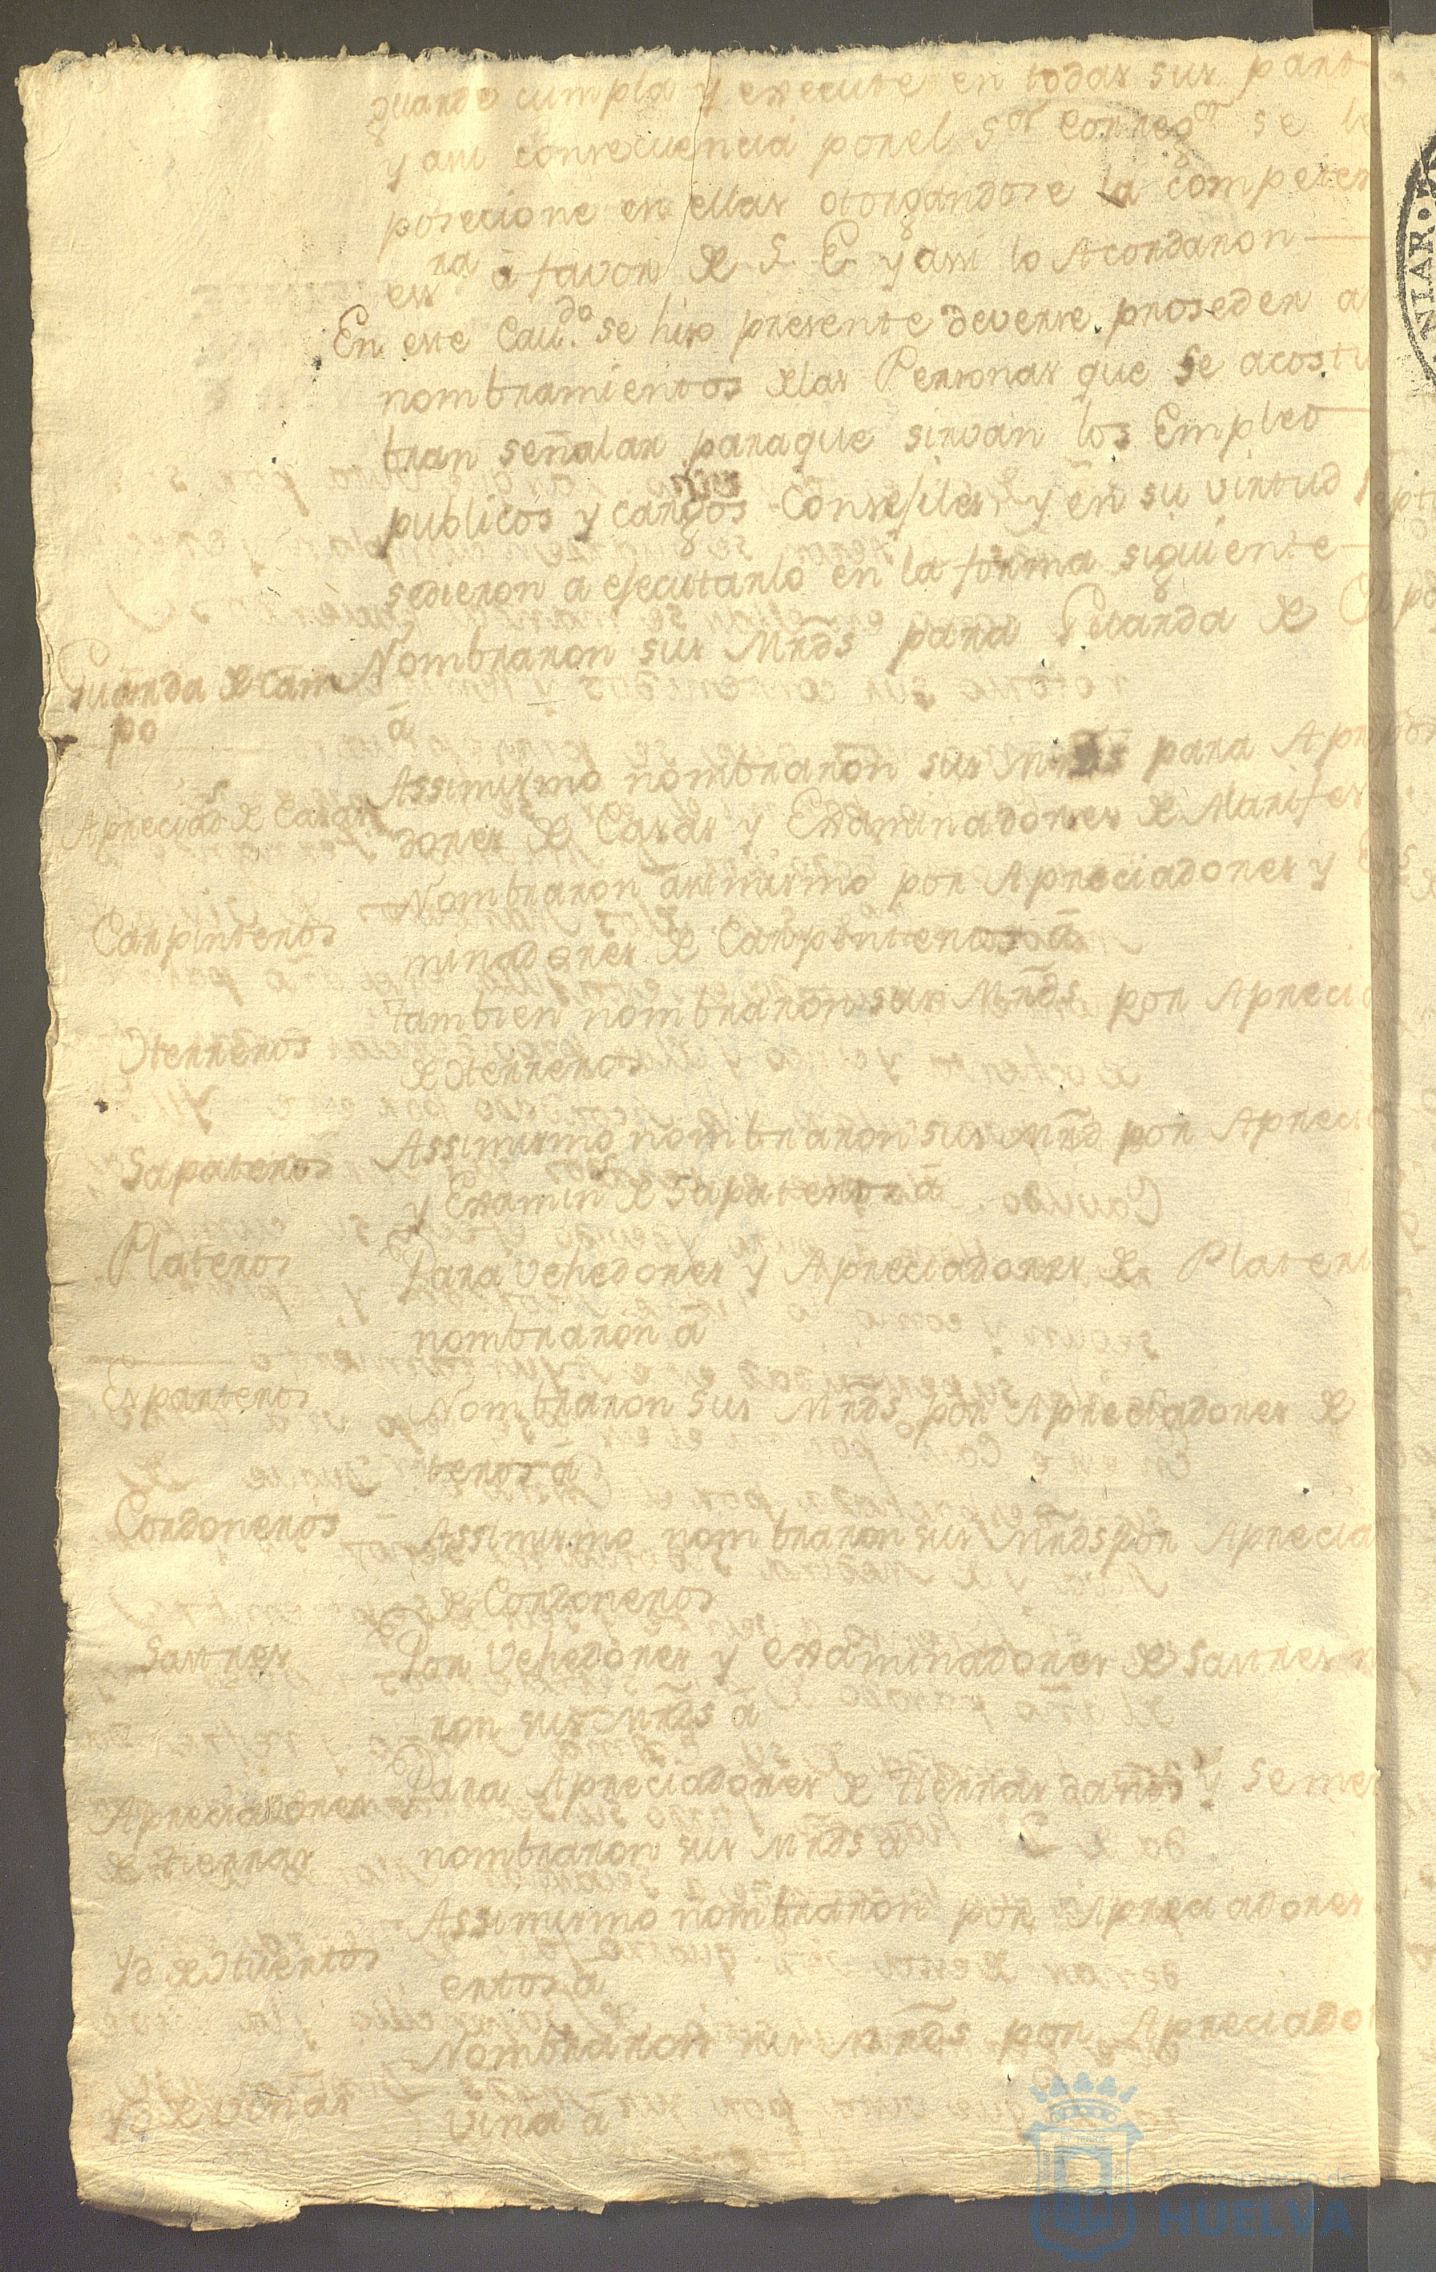 guarde cumpla y execute en todas sus part
y assi consecuencia por el Sor Corregor se le
posecione en ellas otorgandose la competen
essra à favor de S. E. y assi lo Acordaron
En este Caudo. se hiso presente deverse proseder a
nombramientos de las Personas que se acostu
bran señalar paraque sirvan los Empleo
publicos y cargos Consejiles, y en su virtud
sedieron a ejecutarlo en la forma siguiente
Guarda de cam
po
Nombraron sus Mrds para Guarda de
à
Apreciads de Casas
Assimismo nombraron sus Mrds para Apr
dores de Casas y Examinadores de Alarifes
Carpinteros
Nombraron assimismo por Apreciadores y
minadores de Carpinteros à
Herreros
tambien nombraron sus Mrds por Aprecia
de Herreros
Sapateros
Assimismo nombraron sus Mrd por Aprecia
y Examin de Sapateros à
Plateros
Para Vehedores y Apreciadores de Plater
nombraron à
Esparteros
Nombraron sus Mrds por Apreciadores de
teros à
Cordoneros
Assimismo nombraron sus Mrds por Aprecia
de Cordoneros
Sastres
Por Vehedores y examinadores de Sastres n
ron sus Mrds à
Apreciadores
de tierras
Para Apreciadores de tierras daños y Seme
nombraron sus Mrds à
Yd de Huertos
Assimismo nombraron por Apreciadores
ertos à
Yd de viñas
Nombraron sus Mrds por Apreciado
viña à
NIAR
Ayuntamiento de
HUELVA